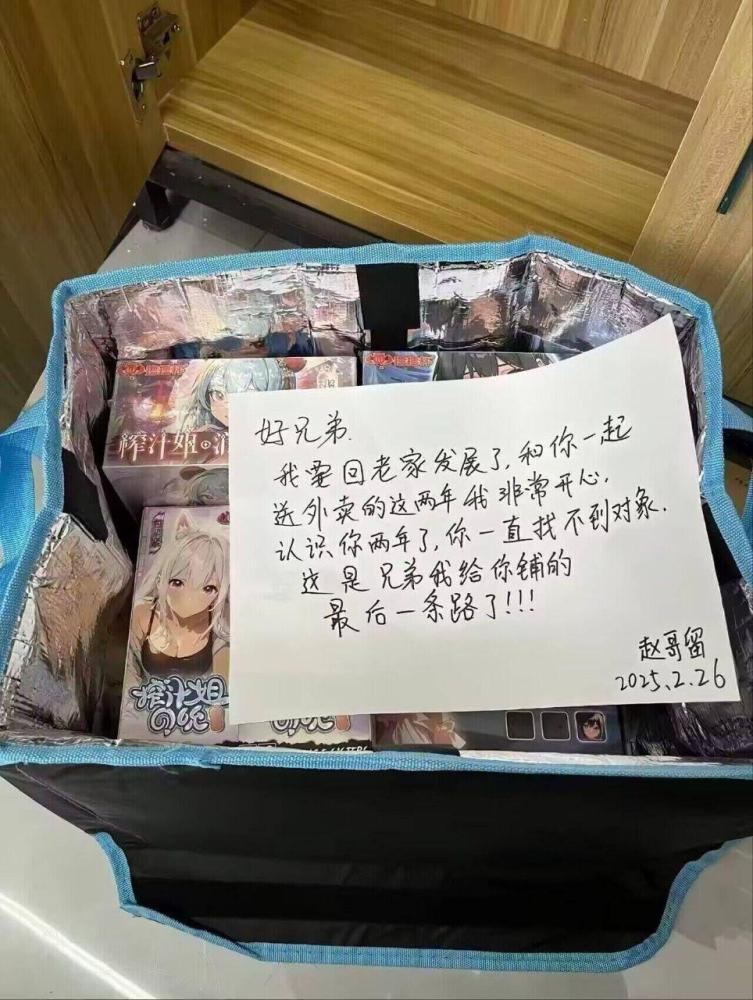 榨汁姐
好兄弟.
我要回老家发展了,和你一起
送外卖的这两年我非常开心.
认识你两年了,你一直找不到对象.
这是兄弟我给你铺的
最后一条路了!!!
赵哥留
2025.2.26
榨汁姐